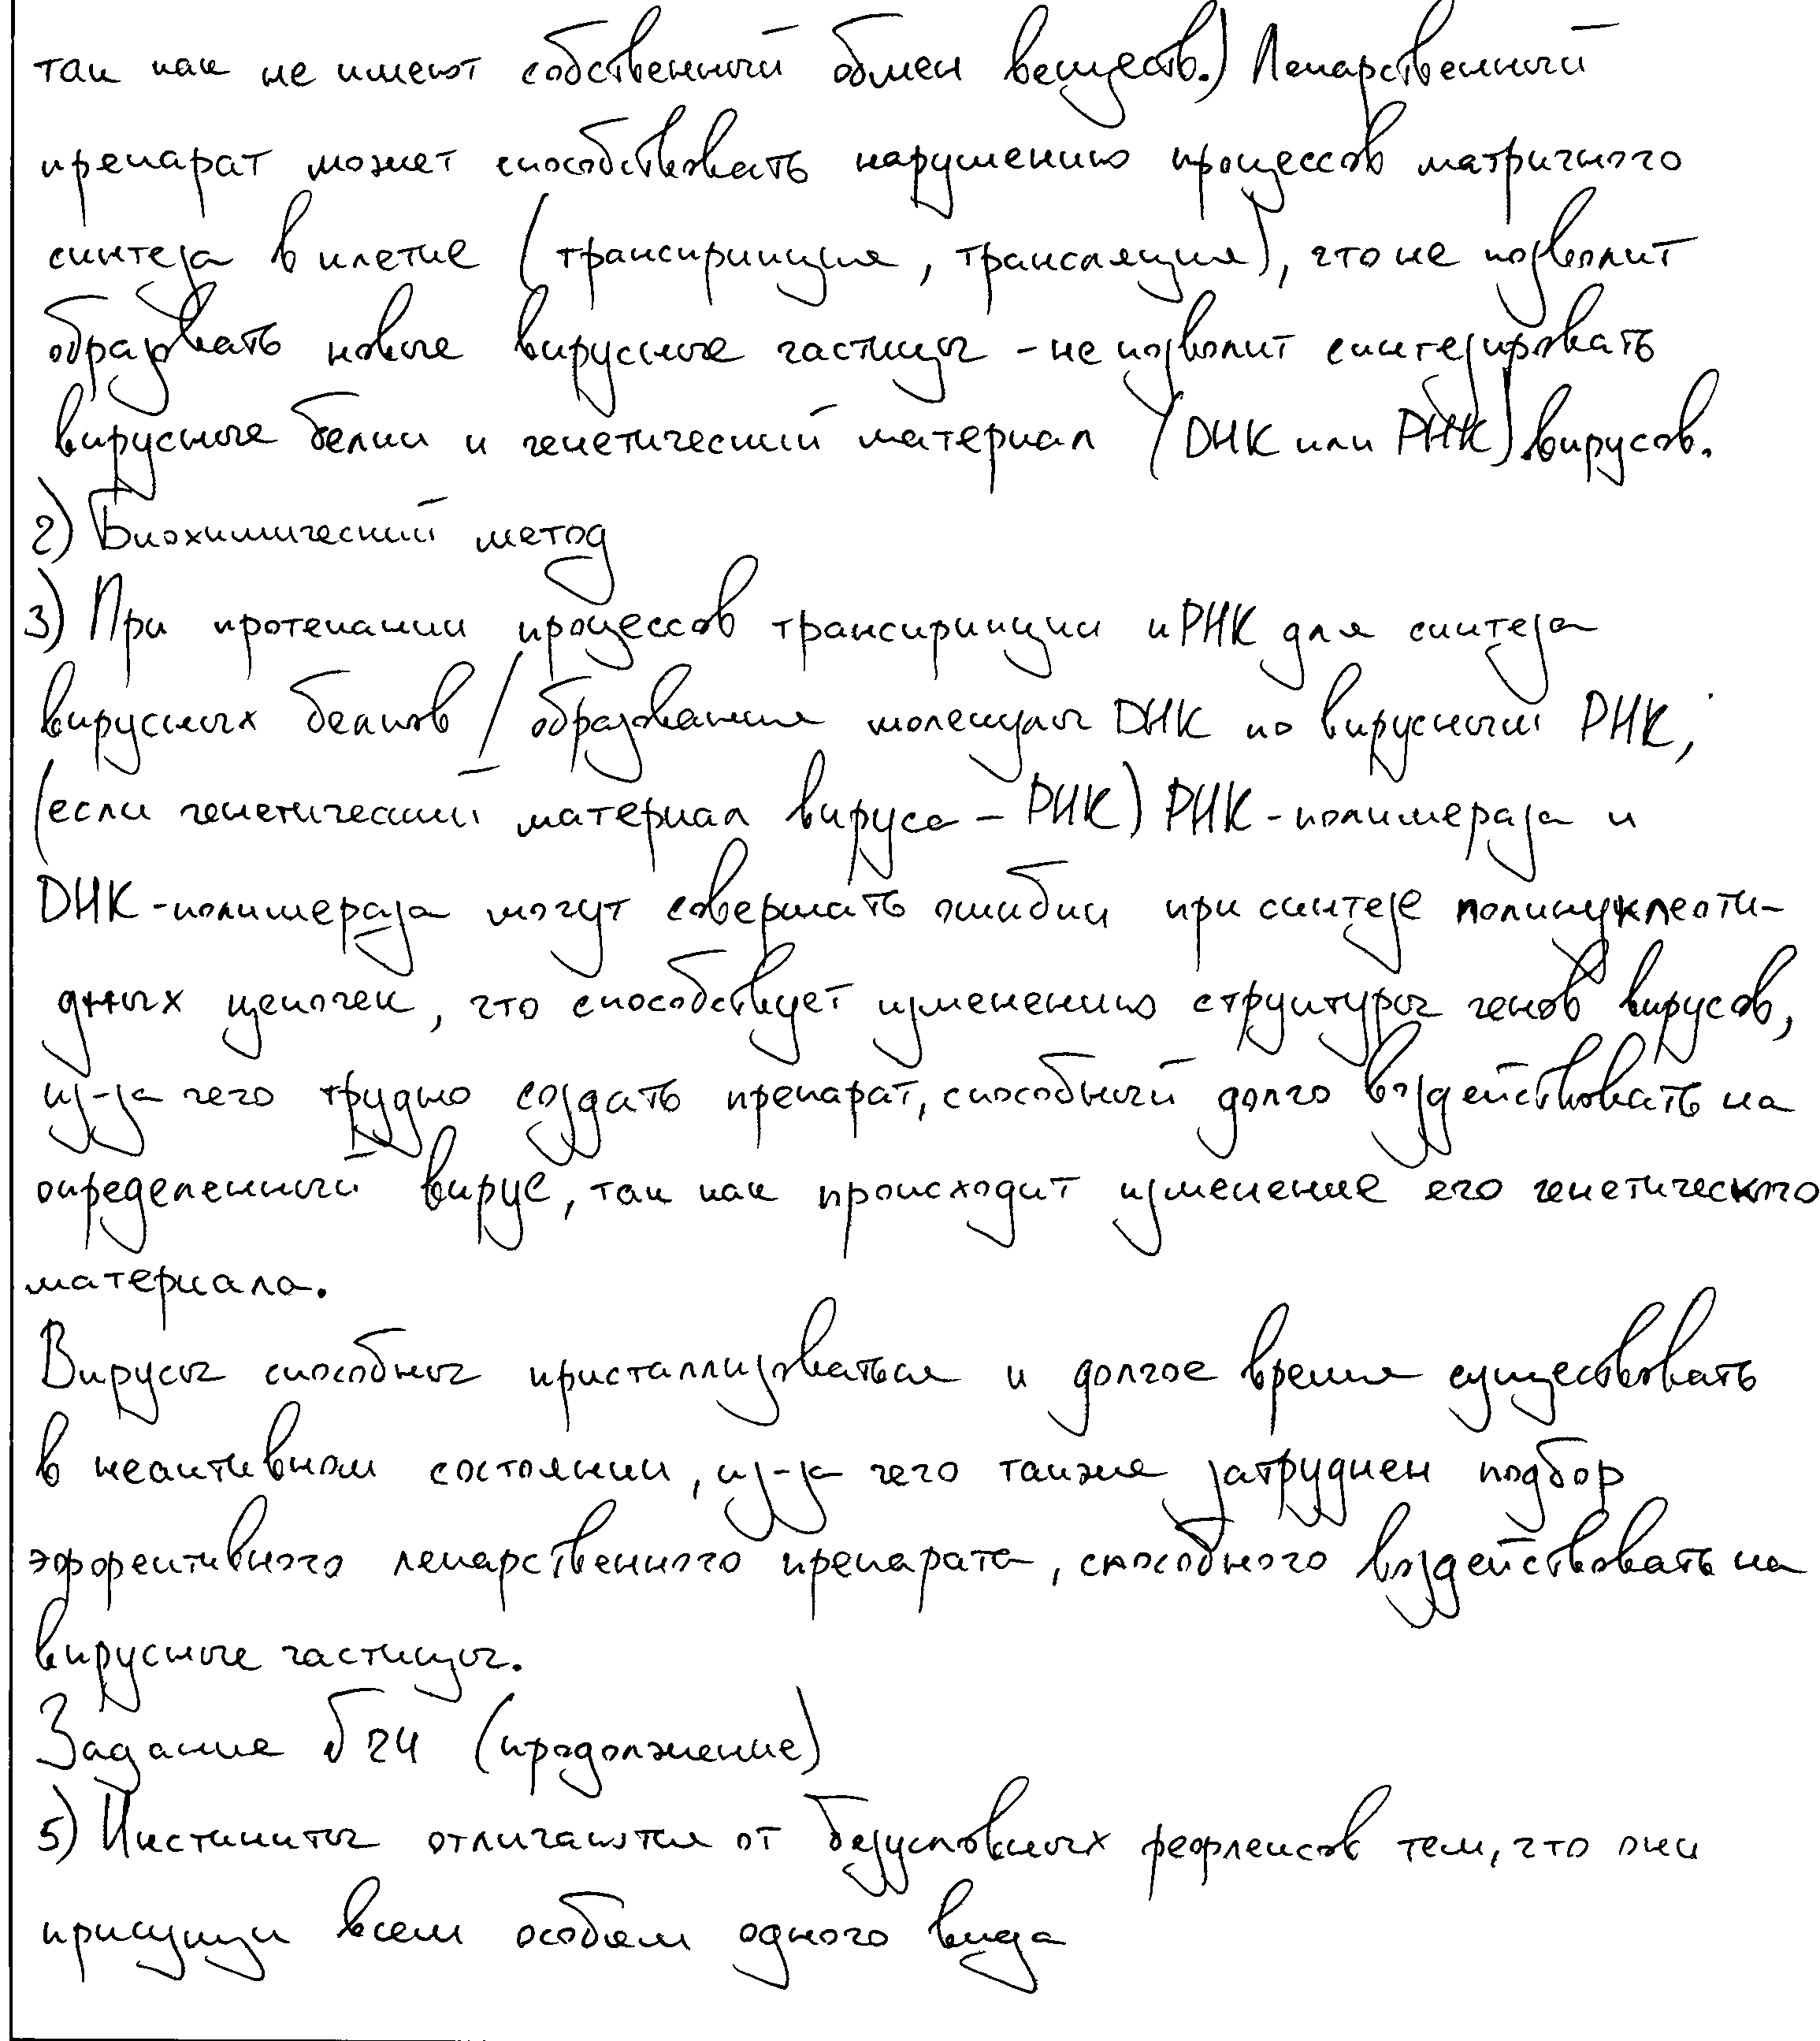 так как не имеют собственный обмен веществ.) Лекарственный
препарат может способствовать нарушению процессов матричного
синтеза в клетке (транскрипция, трансляция), что не позволит
образовать новые вирусные частицы - не позволит синтезировать
вирусные белки и генетический материал (ДНК или РНК) вирусов.
2) Биохимический метод
3) При протекании процессов транскрипции иРНК для синтеза
вирусных белков / образования молекулы ДНК по вирусный РНК,
(если генетический материал вируса - РНК) РНК-полимераза и
ДНК-полимераза могут совершать ошибки при синтезе полинуклеоти-
дных цепочек, что способствует изменению структуры генов вирусов,
из-за чего трудно создать препарат, способный долго воздействовать на
определенный вирус, так как происходит изменение его генетического
материала.
Вирусы способны кристаллизоваться и долгое время существовать
в неактивном состоянии, из-за чего также затруднен подбор
эффективного лекарственного препарата, способного воздействовать на
вирусные частицы.
Задание √24 (продолжение)
5) Инстинкты отличаются от безусловных рефлексов тем, что они
присущи всем особям одного вида